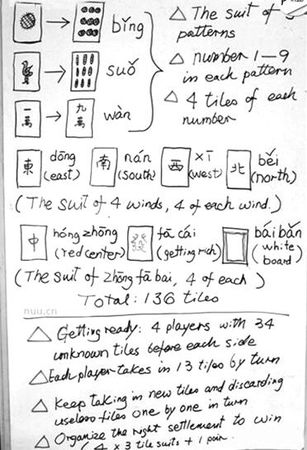 bǐng
suǒ
一萬 九萬 wàn
△ The suit of patterns
△ number 1-9 in each pattern
△ 4 tiles of each number
東 dōng (east) 南 nán (south) 西 xī (west) 北 běi (north)
(The suit of 4 winds, 4 of each wind.)
中 hóng zhōng (red center) 發 fā cái (getting rich) bái bǎn (white board)
(The suit of zhōng fā bai, 4 of each)
Total: 136 tiles
nuu.cn
△ Getting ready: 4 players with 34
unknown tiles before each side
△ Each player takes in 13 tiles by turn
△ Keep taking in new tiles and discarding
useless tiles one by one in turn
△ Organize the right settlement to win
(4 x 3 tile suits + 1 pair